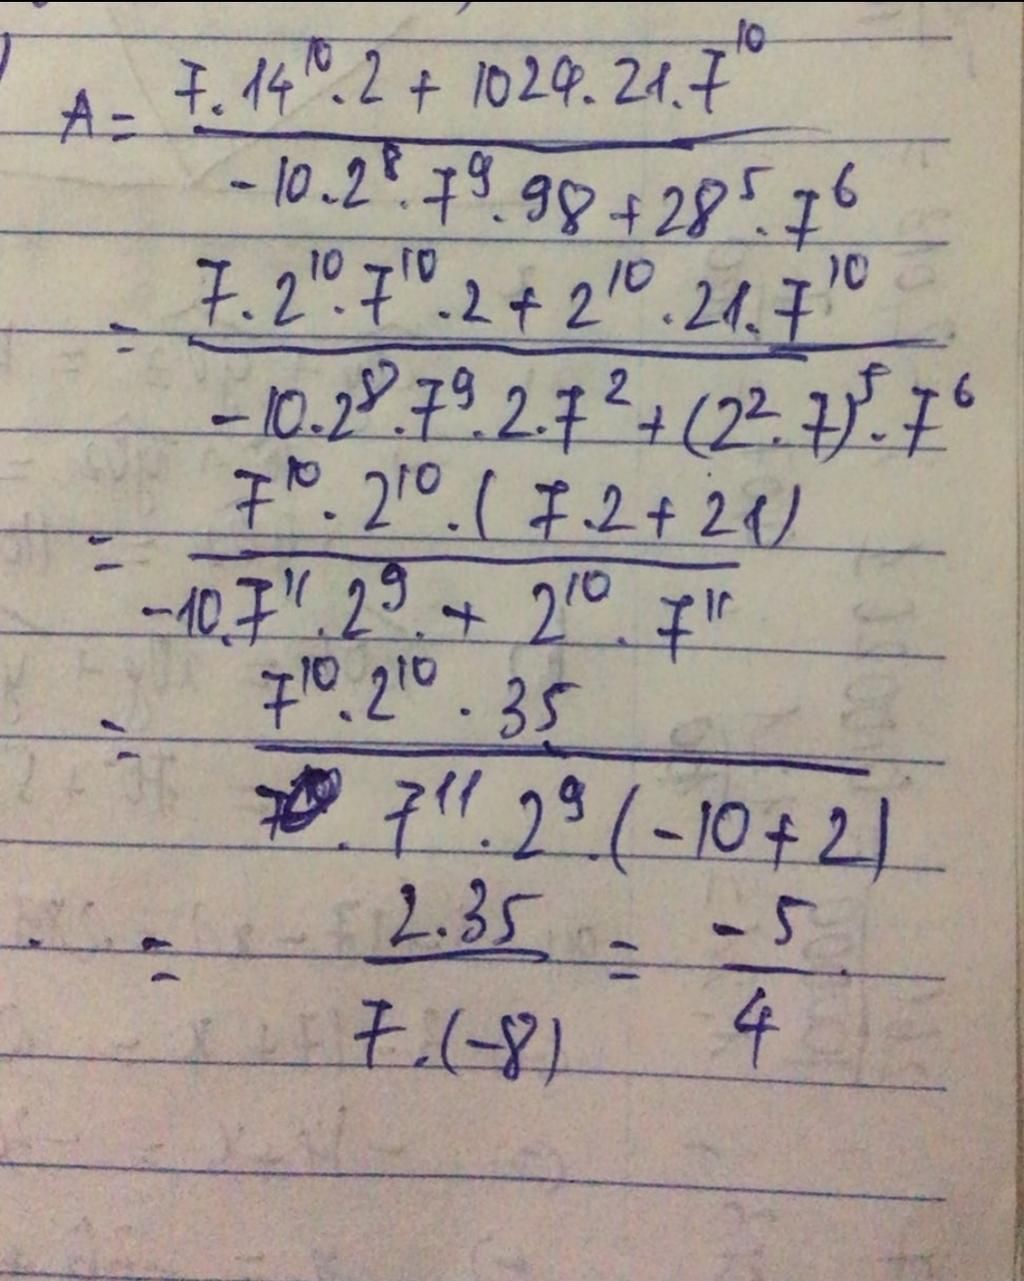 A = 7.14^10.2 + 1024.21.7^10
-10.2^8.7^9.98 + 28^5.7^6
= 7.2^10.7^10.2 + 2^10.21.7^10
-10.2^8.7^9.2.7^2 + (2^2.7)^5.7^6
= 7^10.2^10.(7.2 + 21)
-10.7^11.2^9. + 2^10.7^11
= 7^10.2^10.35
7^11.2^9.(-10 + 2)
= 2.35 = -5
7.(-8) 4